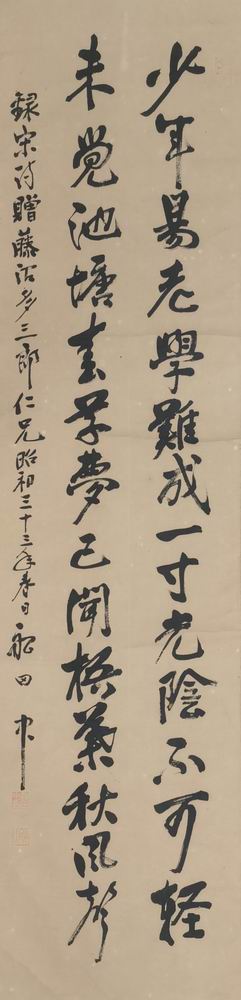 少年易老學難成一寸光陰不可軽
未覚池塘春草夢已聞梧葉秋風聲
録宋詩贈藤沼多三郎仁兄昭和三十三年春日船田中